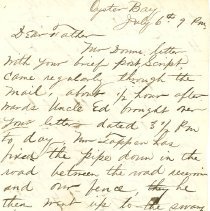 Oyster Bay
July 6th 9 Pm.
Dear Father
Mr Donne letter
with your brief post Script
came regularly through the
mail, about ½ hour after
wards Uncle Ed brought over
your letter dated 3½ Pm
to day. Mr Lappan has
the pipe down in the
road between the road
and our fence, he
then went up to the